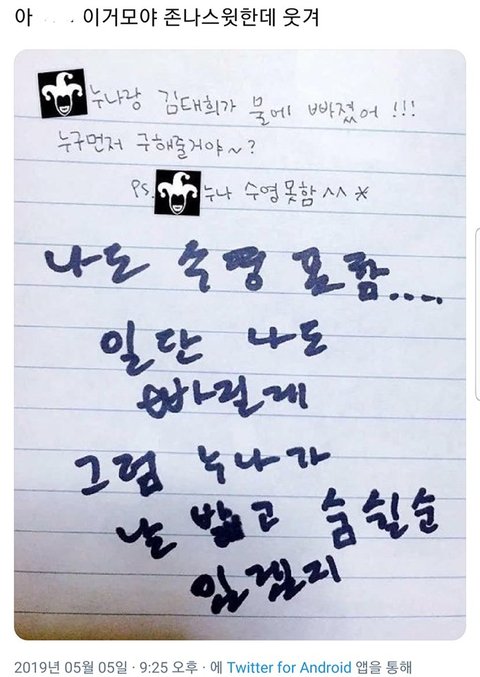 아 . 이거모야 존나스윗한데 웃겨
누나랑 김태희가 물에 빠졌어 !!!
누구먼저 구해줄거야~?
Ps. 누나 수영못함 ^^ *
나도 수영 못함....
일단 나도
빠질게
그럼 누나가
날 밟고 숨쉴순
있겠지
2019년 05월 05일 · 9:25 오후 · 에 Twitter for Android 앱을 통해